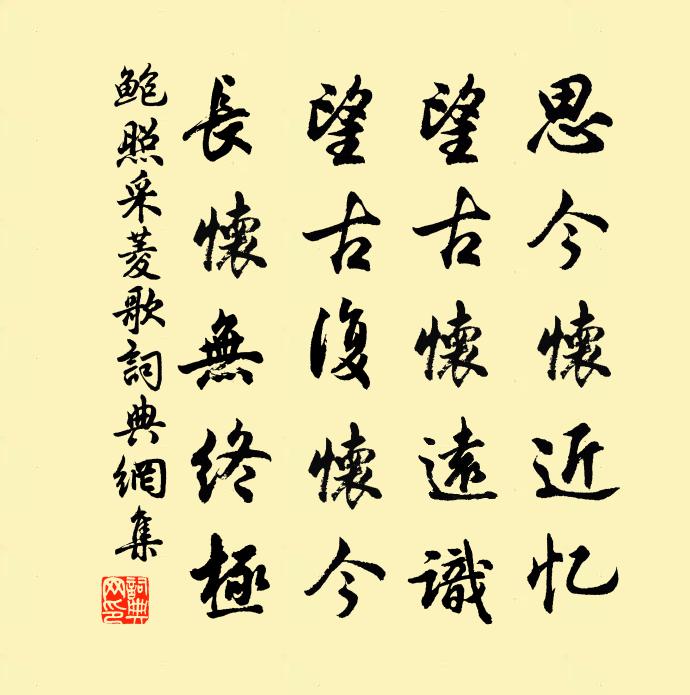 思今懷近忆
望古懷遠識
望古復懷今
長懷無終極
鮑照采菱歌詞典網集
詞典網印